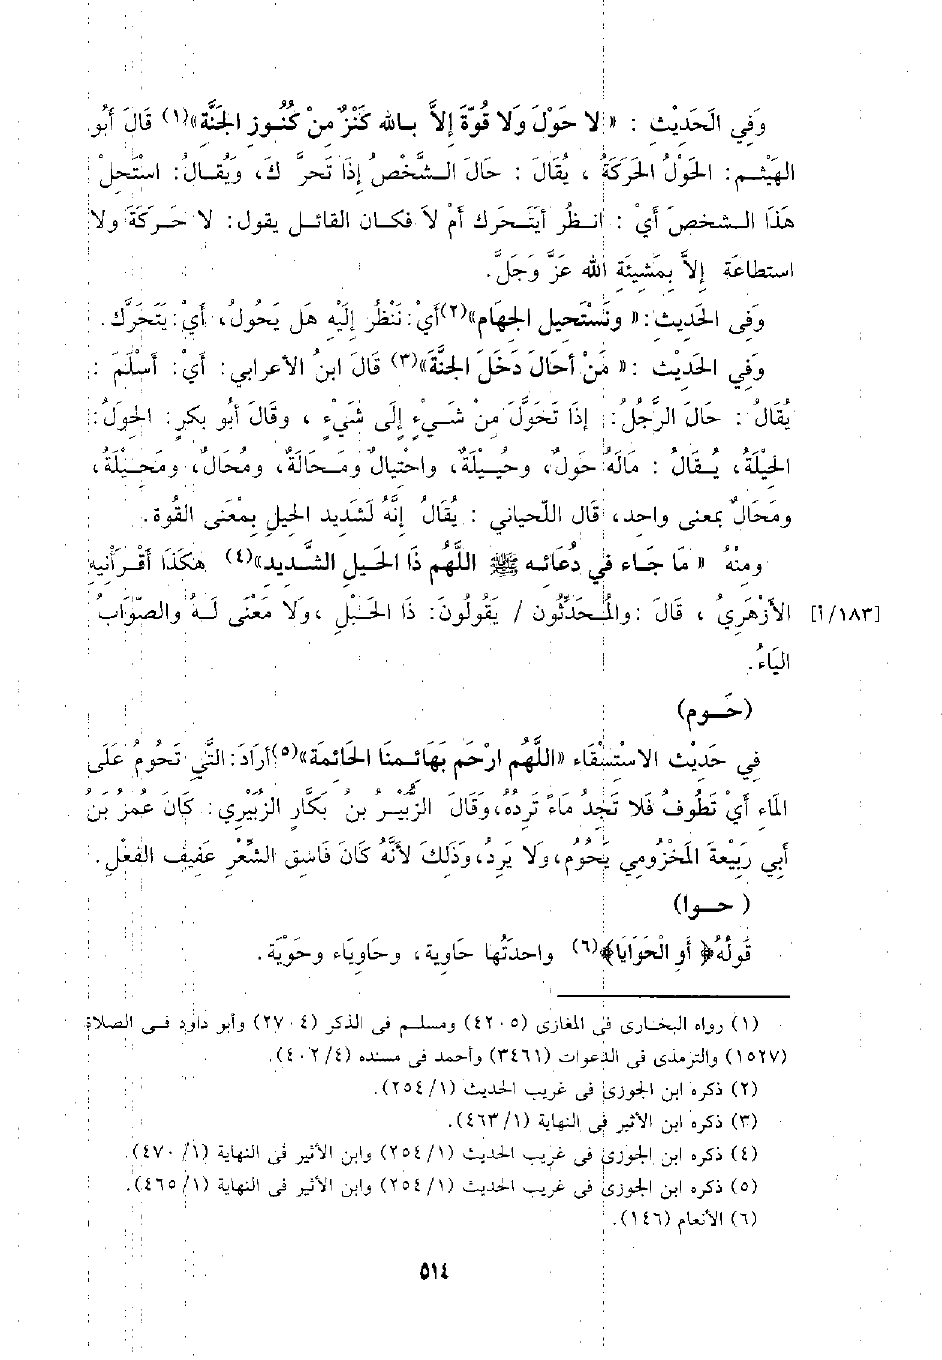 وَفِي الحَدِيْثِ : « لا حَوْلَ وَلا قُوَّةَ إِلاَّ بالله كَنْزٌ مِنْ كُنُوزِ الجَنَّة»(١) قَالَ أَبُو
الهَيْثمِ: الحَوْلُ الحَرَكَةُ ، يُقَالَ : حَالَ الشَّخْصُ إِذَا تَحرَّك، وَيُقَالُ: اسْتَحِلْ
هَذَا الشخصَ أَيْ : انظُر أَيَتَحَرك أمْ لاَ فكان القائل يقول: لا حَرَكَةَ ولا
استطاعَة إِلاَّ بِمَشيئَةِ الله عَزَّ وَجَلَّ.
وَفى الحَديث: « ونَسْتَحيل الجهام»(٢)أي: نَنْظُر إِلَيْهِ هَل يَحُولُ، أَيْ: يَتَحَرَّك.
وَفِي الحَديْث : « مَنْ أحَالَ دَخَلَ الجنَّةَ»(٣) قَالَ ابنُ الأعرابي: أيْ: أسْلَمَ :
يُقَالُ : حَالَ الرَّجُلُ: إِذَا تَحَوَّلَ مِنْ شَيءٍ إِلَى شَيْءٍ ، وقَالَ أَبُو بكرٍ: الحَوَلُ:
الحَيْلَةُ، يُقَالُ : مَالَهُ حَولٌ، وحَيلةٌ، واحْتِيالٌ ومَحَالَةٌ، ومُحَالٌ، ومَحيْلَةُ،
ومَحَالٌ بمعنى واحد، قَال اللّحياني : يُقَالُ إنَّهُ لَشَديد الحيل بِمَعْنَى القُوة.
ومنْهُ « مَا جَاء فِي دُعَائه ﷺ اللَّهُم ذَا الحَيل الشَّديد»(٤) هكَذَا أَقْرَأنيه
[١٨٣/أ] الأَزْهَرِيُ ، قَالَ :والمُحَدِّثُون / يَقُولُونَ: ذَا الحَبْل ،وَلا مَعْنَى لَهُ والصَّوَابُ
اليَاءُ.
(حَوم)
فِي حَديْث الاسْتسْقَاء «اللَّهُم ارْحَم بَهَائمنَا الحَائمَة»(٥)أرَادَ: الَّتِي تَحُومُ عَلَى
المَاء أَيْ تَطُوفُ فَلا تَجدُ مَاءً تَردُهُ، وَقَالَ الزُّبَيْر بنُ بَكَّارِ الزُبَيْرِي: كَانَ عُمرُ بَنُ
أَبي رَبيْعَةَ المَخْزُومي يَحُوم، وَلا يَرِدُ، وَذَلكَ لأنَّهُ كَانَ فَاسقِ الشِّعْرِ عَفيفَ الفعْلِ.
( حوا)
قَولُهُ﴿ أَو الْحَوَايَا﴾(٦) واحدَتُها حَاوية، وحَاويَاء وحَويَّة.
(١) رواه البخارى فى المغازى (٤٢٠٥) ومسلم فى الذكر (٢٧٠٤) وأبو داود فى الصلاة
(١٥٢٧) والترمذى فى الدعوات (٣٤٦١) وأحمد فى مسنده (٤٠٢/٤).
(٢) ذكره ابن الجوزى فى غريب الحديث (٢٥٤/١).
(٣) ذكره ابن الأثير فى النهاية (٤٦٣/١).
(٤) ذكره ابن الجوزى فى غريب الحديث (٢٥٤/١) وابن الأثير فى النهاية (٤٧٠/١).
(٥) ذكره ابن الجوزى فى غريب الحديث (٢٥٤/١) وابن الأثير فى النهاية (٤٦٥/١).
(٦) الأنعام (١٤٦).
٥١٤